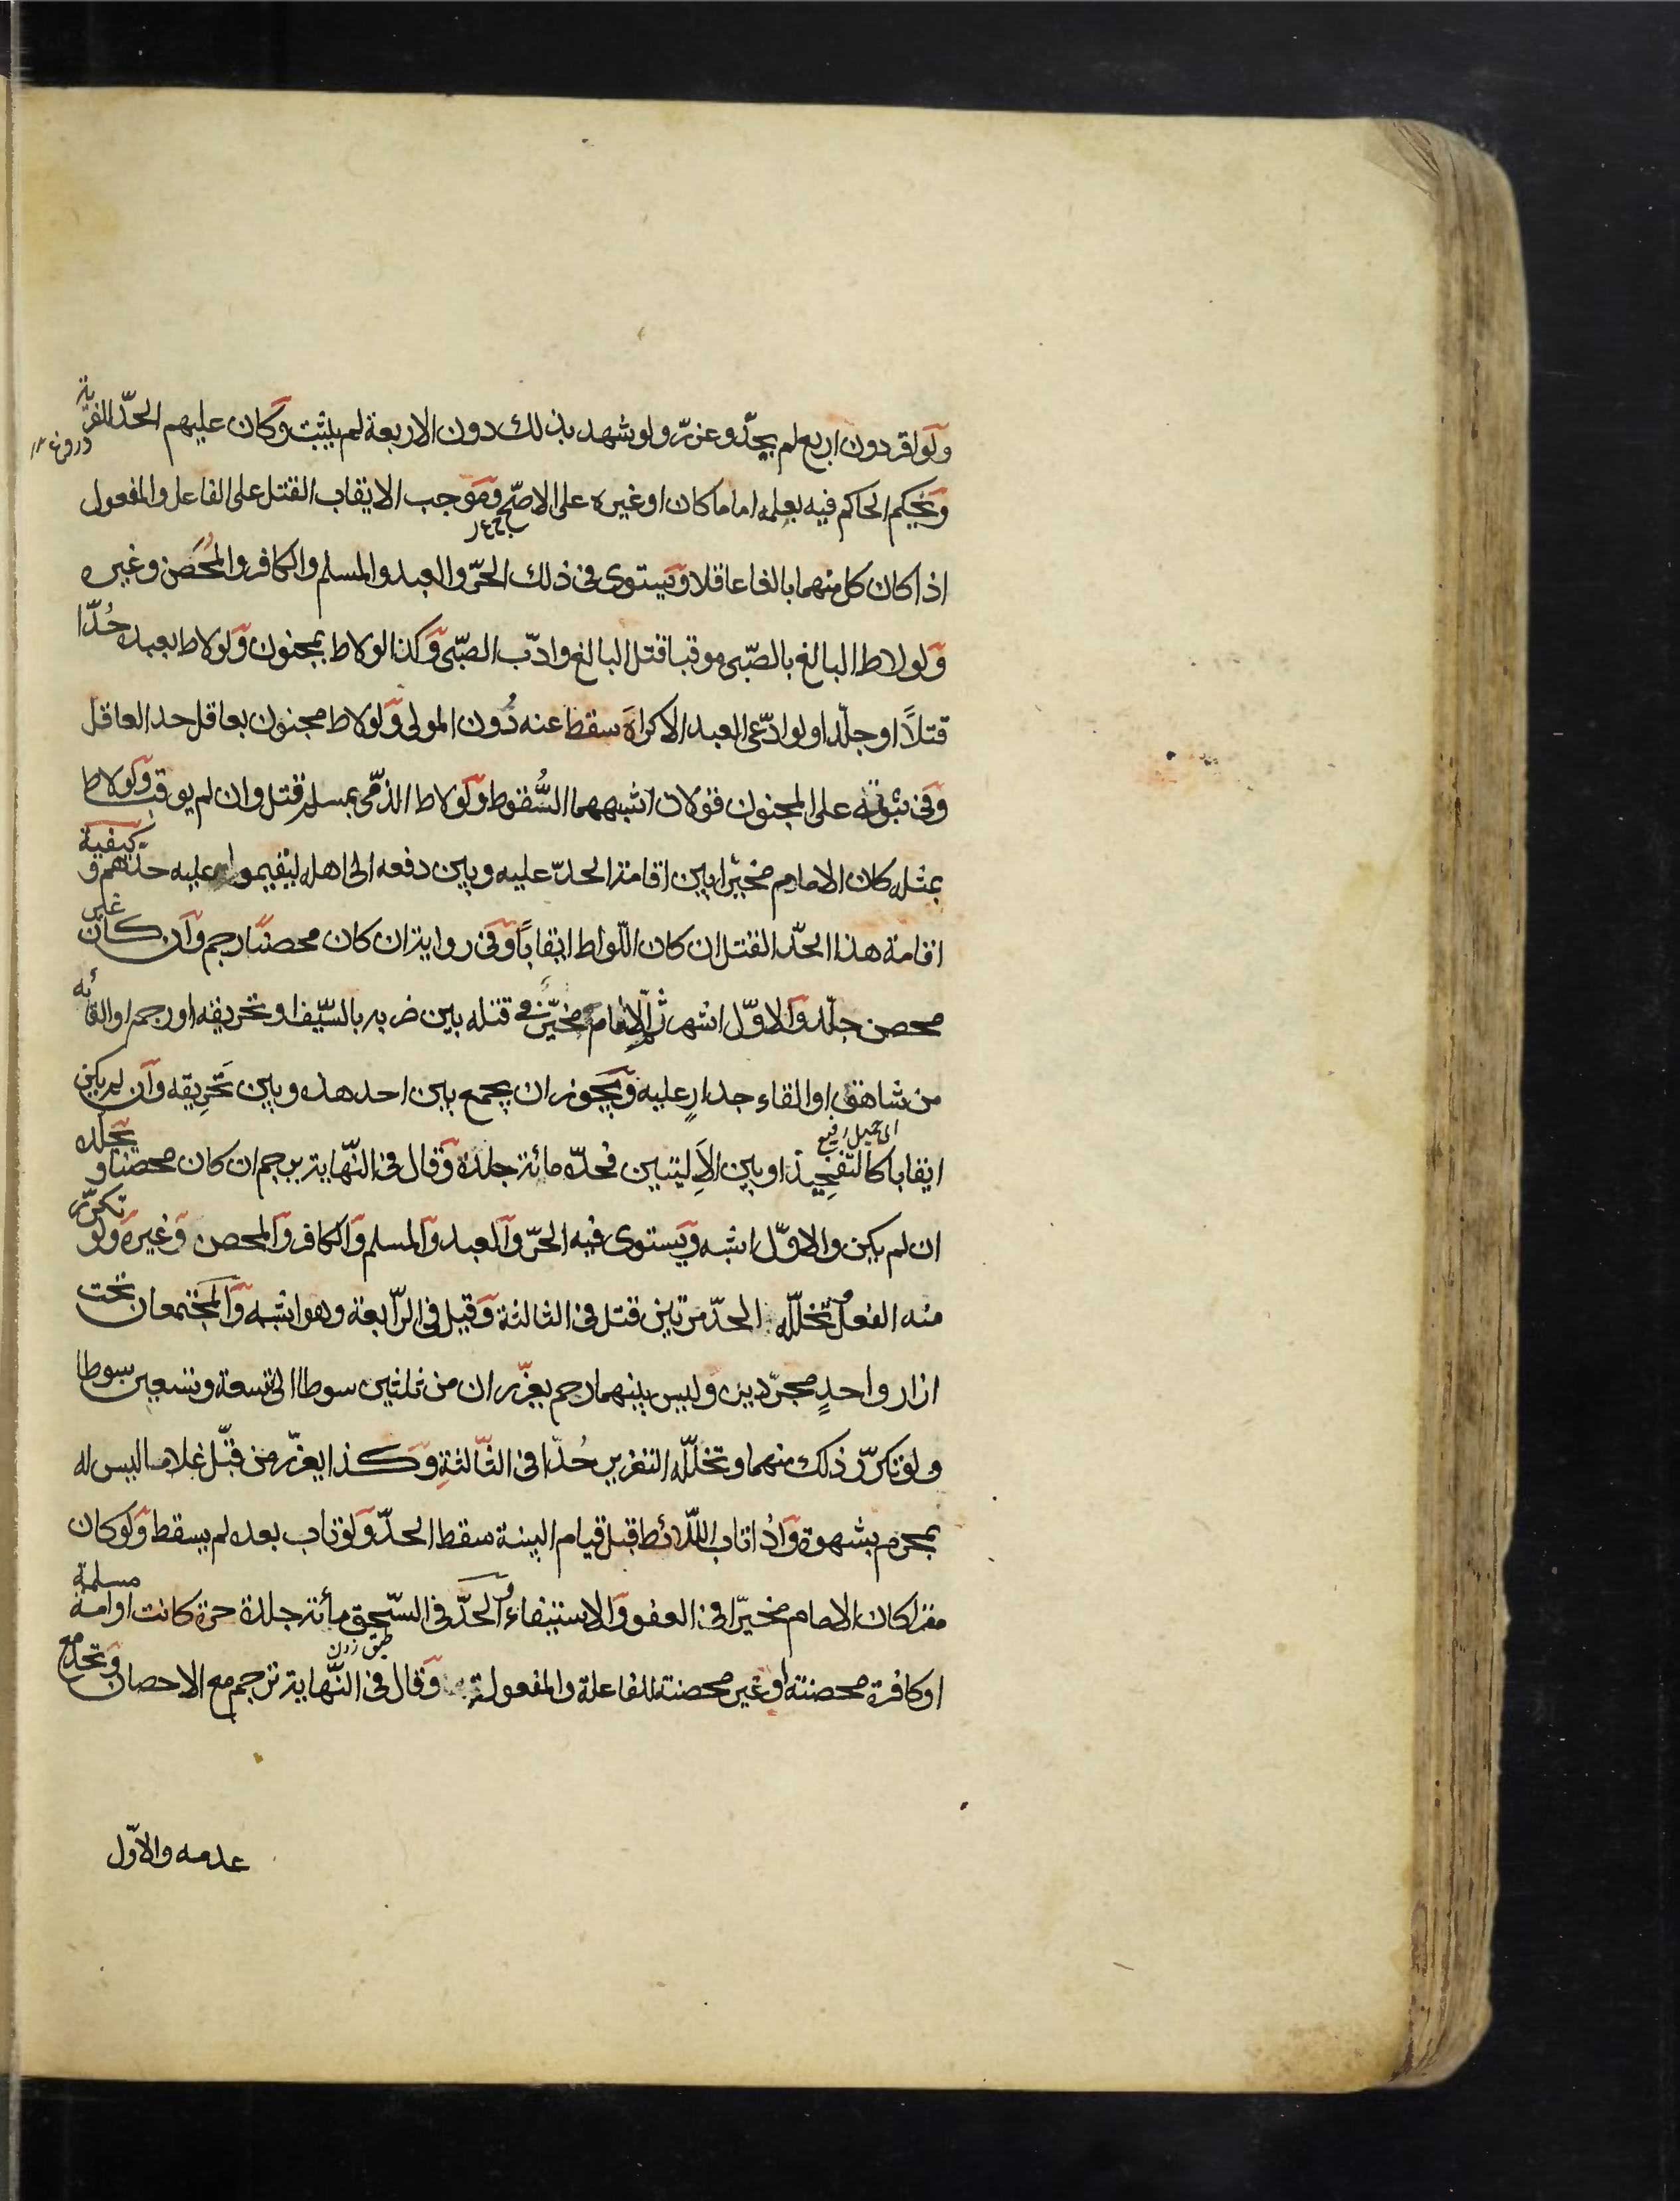 ولو اقر دون اربع لم يحدّ وعزّر ولو شهد بذلك دون الاربعة لم يثبت وكان عليهم الحدّ للفرية
دروغ
ويحكم الحاكم فيه بعلمه اماما كان او غيره على الاصحّ وموجب الايقاب القتل على الفاعل والمفعول
اذا كان كل منهما بالغا عاقلا ويستوى فى ذلك الحرّ والعبد والمسلم والكافر والمحصن وغيره
ولو لاط البالغ بالصّبى موقبا قتل البالغ وادّب الصّبى وكذا لو لاط بمجنون ولو لاط بعبده حُدّا
قتلاً او جلدا ولو ادّعى العبد الاكراه سقط عنه دُون المولى ولو لاط مجنون بعاقل حد العاقل
وفى ثبوته على المجنون قولان اشبههما السُّقوط ولو لاط الذمّى بمسلم قتل وان لم يوقب ولو لاط
بمثله كان الامام مخيّرا بين اقامة الحدّ عليه وبين دفعه الى اهله ليقيموا عليه حدّهم وكيفية
اقامة هذا الحدّ القتل ان كان اللّواط ايقاباً وفى رواية ان كان محصنا رجم وان كان غير
محصن جلّد والاوّل اشهر ثم الامام مخيّر فى قتله بين ضربه بالسّيف او تحريقه او رجمه او القائه
من شاهق او القاء جدارٍ عليه ويجوز ان يجمع بين احد هذه وبين تَحرِيقه وان لم يكن
اى جبل رفيع
ايقابا كالتّفخِيذ او بين الاَليتين فحدّه مائة جلدة وقال فى النّهاية يرجم ان كان محصنا ويجلد
ان لم يكن والاوّل اشبه ويستوى فيه الحرّ والعبد والمسلم والكافر والمحصن وغيره ولو تكرّر
منه الفعل وتخلّله الحدّ مرّتين قتل فى الثالثة وقيل فى الرّابعة وهو اشبه والمجتمعان تحت
ازار واحدٍ مجرّدين وليس بينهما رحم يعزّران من ثلثين سوطا الى تسعة وتسعين سوطا
ولو تكرّر ذلك منهما وتخلّله التعزير حُدّا فى الثّالثة وكذا يعزّر من قبّل غلاما ليس له
بمحرم بشهوة واذا تاب اللّائط قبل قيام البينة سقط الحدّ ولو تاب بعده لم يسقط ولو كان
مقرا كان الامام مخيّرا فى العفو والاستيفاء والحدّ فى السّحق مأئة جلدة حرة كانت او امة مسلمة
طبق زدن
او كافرة محصنة او غير محصنة للفاعلة والمفعولة وقال فى النّهاية ترجم مع الاحصان وتحد مع
عدمه والاوّل